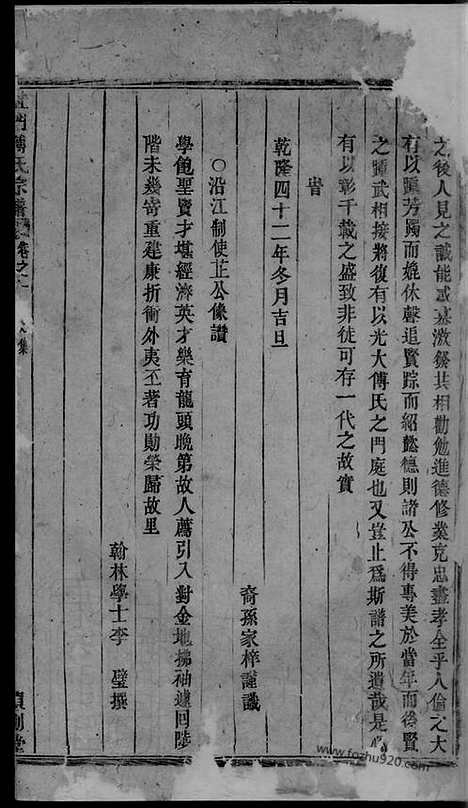 之後人見之誠能感慕激發共相勸勉進德修業克忠盡孝全乎人倫之大
有以躡芳躅而媲休聲追賢踪而紹懿德則諸公不得專美於當年而後賢
之踵武相接將復有以光大傅氏之門庭也又豈止為斯譜之所遺哉是
有以彰千載之盛致非徒可存一代之故實
旹
乾隆四十二年冬月吉旦
裔孫家梓謹識
○沿江制使芷公像讚
學飽聖賢才堪經濟英才樂育龍頭晚第故人薦引入對金地拂袖遽回陛
階未幾寄重建康折衝外夷丕著功勛榮歸故里
翰林學士李 璧撰
門傅氏宗譜 卷之 集
www.fozhu920.com